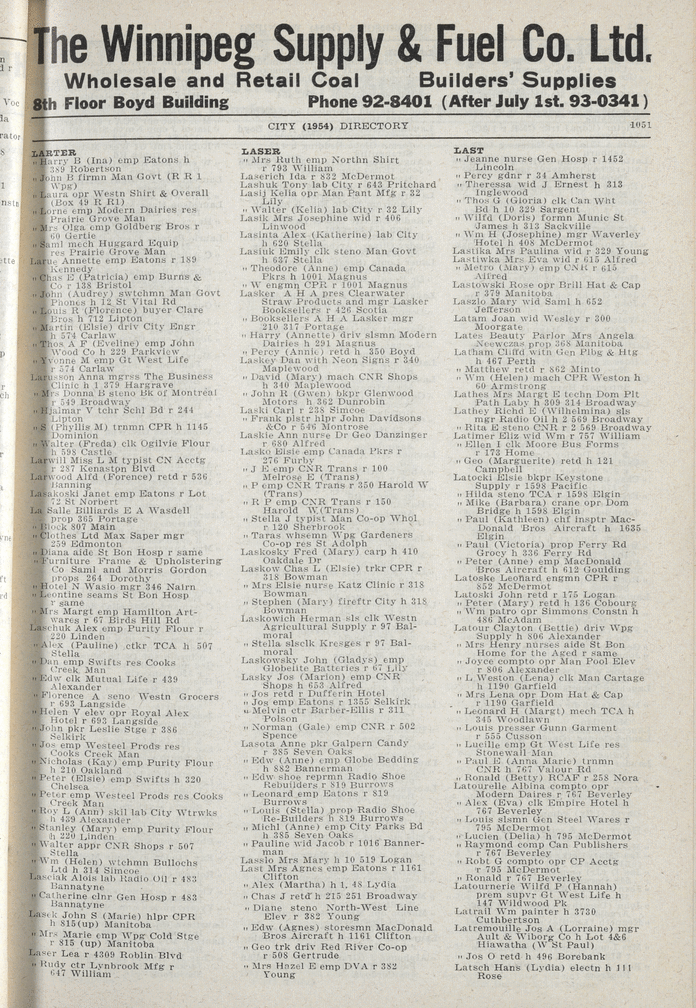 The Winnipeg Supply & Fuel Co. Ltd.
Wholesale and Retail Coal Builders' Supplies
8th Floor Boyd Building Phone 92-8401 (After July 1st. 93-0341)
CITY (1954) DIRECTORY 1051
LARTER
" Harry B (Ina) emp Eatons h
389 Robertson
" John B firmn Man Govt (R R 1
Wpg)
" Laura opr Westn Shirt & Overall
(Box 49 R R1)
" Lorne emp Modern Dairies res
Prairie Grove Man
" Mrs Olga emp Goldberg Bros r
60 Gertie
" Saml mech Huggard Equip
res Prairie Grove Man
Larue Annette emp Eatons r 189
Kennedy
" Chas E (Patricia) emp Burns &
Co r 138 Bristol
" John (Audrey) swtchmn Govt
Phones h 12 St Vital Rd
" Louis R (Florence) buyer Clare
Bros h 712 Lipton
" Martin (Elsie) driv City Engr
h 574 Carlaw
" Thos A F (Eveline) emp John
Wood Co h 229 Parkview
" Yvonne M emp Gt West Life
r 574 Carlaw
Larusson Anna mgrss The Business
Clinic h 1 379 Hargrave
" Mrs Donna B steno Bk of Montreal
r 549 Broadway
" Hjalmar V tchr Schl Bd r 244
Lipton
" S (Phyllis M) trnmn CPR h 1145
Dominion
" Walter (Freda) clk Ogilvie Flour
h 598 Castle
Larwill Miss L M typist CN Acctg
r 287 Kenaston Blvd
Larwood Alfd (Forence) retd r 536
Banning
Lasakoski Janet emp Eatons r Lot
72 St Norbert
La Salle Billiards E A Wasdell
prop 365 Portage
" Block 807 Main
" Clothes Ltd Max Saper mgr
259 Edmonton
" Diana aide St Bon Hosp r same
" Furniture Frame & Upholstering
Co Saml and Morris Gordon
props 264 Dorothy
" Hotel N Wasio mgr 346 Nairn
" Leontine seams St Bon Hosp
r same
" Mrs Margt emp Hamilton Art-
wares r 67 Birds Hill Rd
Laschuk Alex emp Purity Flour r
220 Linden
" Alex (Pauline) ctkr TCA h 507
Stella
" Dan emp Swifts res Cooks
Creek Man
" Edw clk Mutual Life r 439
Alexander
" Florence A seno Westn Grocers
r 693 Langside
" Helen V elev opr Royal Alex
Hotel r 693 Langside
" John pkr Leslie Stge r 386
Selkirk
" Jos emp Westeel Prods res
Cooks Creek Man
" Nicholas (Kay) emp Purity Flour
h 210 Oakland
" Peter (Elsie) emp Swifts h 320
Chelsea
" Peter emp Westeel Prods res Cooks
Creek Man
" Roy L (Ann) skil lab City Wtrwks
h 439 Alexander
" Stanley (Mary) emp Purity Flour
h 220 Linden
" Walter appr CNR Shops r 507
Stella
" Wm (Helen) wtchmn Bullochs
Ltd h 314 Simcoe
Lasciak Alois lab Radio Oil r 483
Bannatyne
" Catherine clnr Gen Hosp r 483
Bannatyne
Lasek John S (Marie) hlpr CPR
h 815(up) Manitoba
" Mrs Marie emp Wpg Cold Stge
r 815 (up) Manitoba
Laser Lea r 4309 Roblin Blvd
" Rudy ctr Lynbrook Mfg r
647 William
LASER
" Mrs Ruth emp Northn Shirt
r 793 William
Laserich Ida r 832 McDermot
Lashuk Tony lab City r 643 Pritchard
Lasij Kelia opr Man Pant Mfg r 32
Lily
" Walter (Kelia) lab City r 32 Lily
Lasik Mrs Josephine wid r 406
Linwood
Lasinta Alex (Katherine) lab City
h 620 Stella
Lasiuk Emily clk steno Man Govt
h 637 Stella
" Theodore (Anne) emp Canada
Pkrs h 1001 Magnus
" W engmn CPR r 1001 Magnus
Lasker A H A pres Clearwater
Straw Products and mgr Lasker
Booksellers r 426 Scotia
" Booksellers A H A Lasker mgr
210 317 Portage
" Harry (Annette) driv slsmn Modern
Dairies h 291 Magnus
" Percy (Annie) retd h 350 Boyd
Laskey Dan with Neon Signs r 340
Maplewood
" David (Mary) mach CNR Shops
h 340 Maplewood
" John R (Gwen) bkpr Glenwood
Motors h 362 Dunrobin
Laski Carl r 238 Simcoe
" Frank plstr hlpr John Davidsons
&Co r 546 Montrose
Laskie Ann nurse Dr Geo Danzinger
r 680 Alfred
Lasko Elsie emp Canada Pkrs r
276 Furby
" J E emp CNR Trans r 100
Melrose E (Trans)
" P emp CNR Trans r 350 Harold W
(Trans)
" R P emp CNR Trans r 150
Harold W.(Trans)
" Stella J typist Man Co-op Whol
r 120 Sherbrook
" Taras whsemn Wpg Gardeners
Co-op res St Adolph
Laskosky Fred (Mary) carp h 410
Oakdale Dr
Laskow Chas L (Elsie) trkr CPR r
318 Bowman
" Mrs Elsie nurse Katz Clinic r 318
Bowman
" Stephen (Mary) fireftr City h 318
Bowman
Laskowich Herman sls clk Westn
Agricultural Supply r 97 Bal-
moral
" Stella slsclk Kresges r 97 Bal-
moral
Laskowsky John (Gladys) emp
Globelite Batteries r 67 Lily
Lasky Jos (Marion) emp CNR
Shops h 653 Alfred
" Jos retd r Dufferin Hotel
" Jos emp Eatons r 1355 Selkirk
" Melvin ctr Barber-Ellis r 311
Polson
" Norman (Gale) emp CNR r 502
Spence
Lasota Anne pkr Galpern Candy
r 385 Seven Oaks
" Edw (Anne) emp Globe Bedding
h 882 Bannerman
" Edw shoe reprmn Radio Shoe
Rebuilders r 819 Burrows
" Leonard emp Eatons r 819
Burrows
" Louis (Stella) prop Radio Shoe
Re-Builders h 819 Burrows
" Michl (Anne) emp City Parks Bd
h 385 Seven Oaks
" Pauline wid Jacob r 1016 Banner-
man
Lasslo Mrs Mary h 10 519 Logan
Last Mrs Agnes emp Eatons r 1161
Clifton
" Alex (Martha) h 1, 48 Lydia
" Chas J retd h 215 251 Broadway
" Diane steno North-West Line
Elev r 382 Young
" Edw (Agnes) storesmn MacDonald
Bros Aircraft h 1161 Clifton
" Geo trk driv Red River Co-op
r 508 Gertrude
" Mrs Hazel E emp DVA r 382
Young
LAST
" Jeanne nurse Gen Hosp r 1452
Lincoln
" Percy gdnr r 34 Amherst
" Theressa wid J Ernest h 313
Inglewood
" Thos G (Gloria) clk Can Wht
Bd h 10 329 Sargent
" Wilfd (Doris) formn Munic St
James h 313 Sackville
" Wm H (Josephine) mgr Waverley
Hotel h 408 McDermot
Lastika Mrs Paulina wid r 329 Young
Lastiwka Mrs Eva wid r 615 Alfred
" Metro (Mary) emp CNR r 615
Alfred
Lastowski Rose opr Brill Hat & Cap
r 379 Manitoba
Laszlo Mary wid Saml h 652
Jefferson
Latam Joan wid Wesley r 300
Moorgate
Lates Beauty Parlor Mrs Angela
Neewczas prop 368 Manitoba
Latham Cliffd with Gen Plbg & Htg
h 467 Perth
" Matthew retd r 862 Minto
" Wm (Helen) mach CPR Weston h
60 Armstrong
Lathes Mrs Margt E techn Dom Plt
Path Lab h 309 314 Broadway
Lathey Richd E (Wilhelmina) sls
mgr Radio Oil h 2 569 Broadway
" Rita E steno CNR r 2 569 Broadway
Latimer Eliz wid Wm r 757 William
" Ellen I clk Moore Bus Forms
r 173 Home
" Geo (Marguerite) retd h 121
Campbell
Latocki Elsie bkpr Keystone
Supply r 1598 Pacific
" Hilda steno TCA r 1598 Elgin
" Mike (Barbara) crane opr Dom
Bridge h 1598 Elgin
" Paul (Kathleen) chf insptr Mac-
Donald Bros Aircraft h 1635
Elgin
" Paul (Victoria) prop Ferry Rd
Grocy h 336 Ferry Rd
" Peter (Anne) emp MacDonald
Bros Aircraft h 612 Goulding
Latoske Leonard engmn CPR r
852 McDermot
Latoski John retd r 175 Logan
" Peter (Mary) retd h 136 Cobourg
" Wm patro opr Simmons Constn h
486 McAdam
Latour Clayton (Bettie) driv Wpg
Supply h 806 Alexander
" Mrs Henry nurses aide St Bon
Home for the Aged r same
" Joyce compto opr Man Pool Elev
r 806 Alexander
" L Weston (Lena) clk Man Cartage
h 1190 Garfield
" Mrs Lena opr Dom Hat & Cap
r 1190 Garfield
" Leonard H (Margt) mech TCA h
345 Woodlawn
" Louis presser Gunn Garment
r 555 Cusson
" Lucille emp Gt West Life res
Stonewall Man
" Paul E (Anna Marie) trnmn
CNR h 767 Valour Rd
" Ronald (Betty) RCAF r 258 Nora
Latourelle Albina compto opr
Modern Daires r 767 Beverley
" Alex (Eva) clk Empire Hotel h
767 Beverley
" Louis slsmn Gen Steel Wares r
795 McDermot
" Lucien (Della) h 795 McDermot
" Raymond comp Can Publishers
r 767 Beverley
" Robt G compto opr CP Acctg
r 795 McDermot
" Ronald r 767 Beverley
Latournerie Wilfd P (Hannah)
prem supvr Gt West Life h
147 Wildwood Pk
Latrail Wm painter h 3730
Cuthbertson
Latremouille Jos A (Lorraine) mgr
Ault & Wiborg Co h Lot 4&6
Hiawatha (W St Paul)
" Jos O retd h 496 Borebank
Latsch Hans (Lydia) electn h 111
Rose